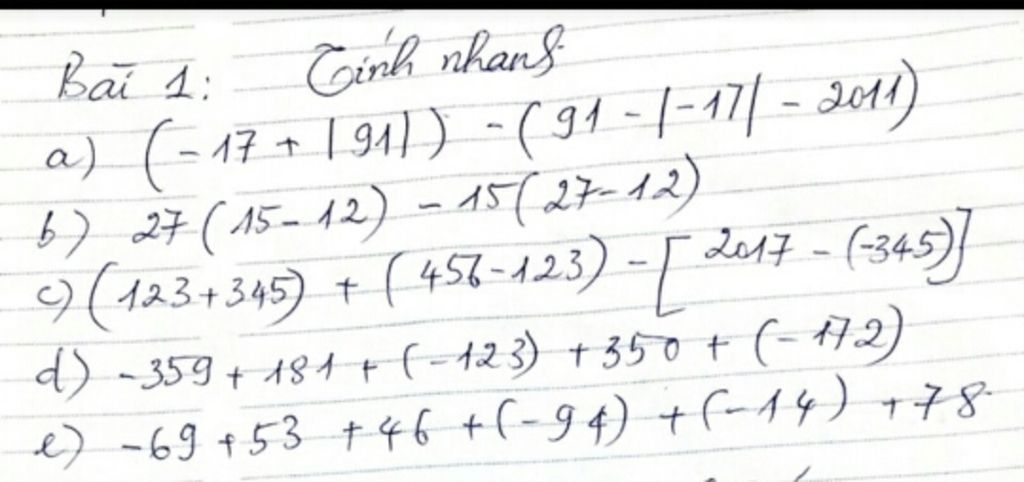 Bài 1: Tính nhanh
a) (-17 + |91|) - (91 - |-17| - 2011)
b) 27(15-12) - 15(27-12)
c) (123+345) + (456-123) - [2017 - (-345)]
d) -359 + 181 + (-123) + 350 + (-172)
e) -69 + 53 + 46 + (-94) + (-14) + 78